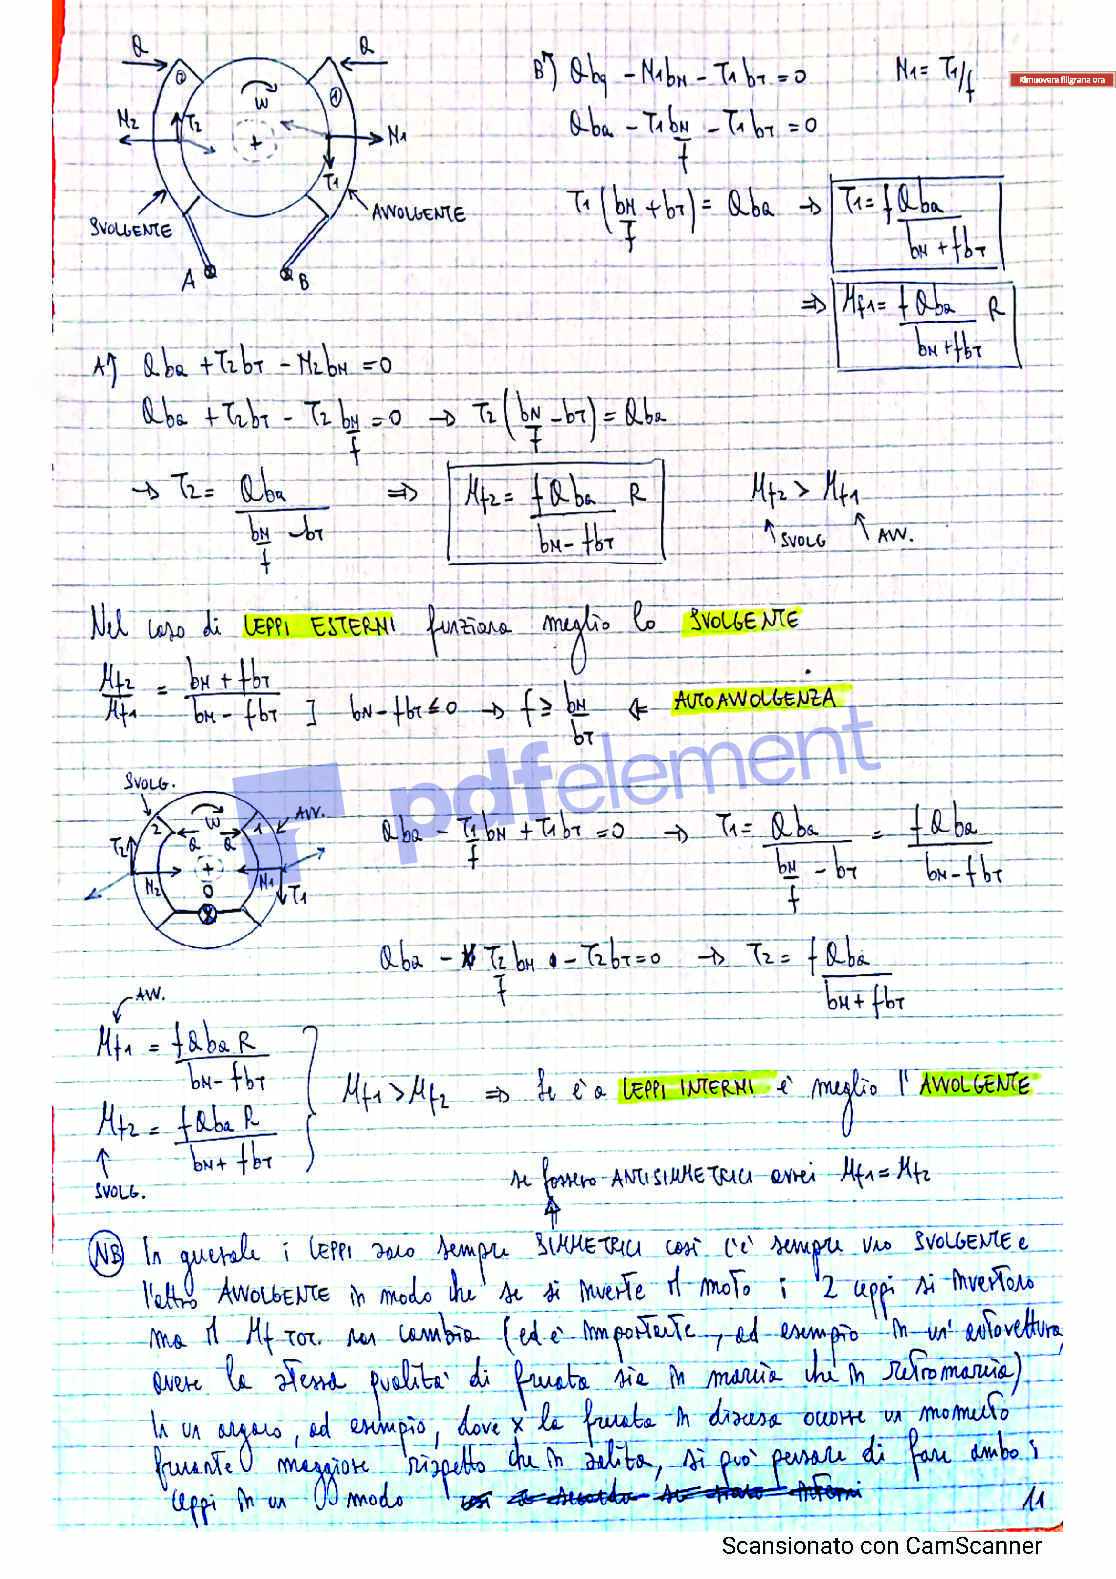 Q
Q
②
①
ω
N2
T2
N1
T1
SVOLGENTE
AVVOLGENTE
A
B
B↰) Qbq - N1bN - T1bT = 0    N1 = T1/f
Rimuovere filigrana ora
Qba - T1bN/f - T1bT = 0
T1 (bN/f + bT) = Qba → T1 = f Qba / bN + fbT
⇒ Mf1 = f Qba / bN + fbT R
A↰) Qba + T2bT - N2bN = 0
Qba + T2bT - T2 bN/f = 0 → T2 (bN/f - bT) = Qba
→ T2 = Qba / bN/f - bT ⇒ Mf2 = f Qba / bN - fbT R    Mf2 > Mf1
SVOLG    AVV.
Nel caso di CEPPI ESTERNI funziona meglio lo SVOLGENTE
Mf2/Mf1 = bN + fbT / bN - fbT ] bN - fbT ≤ 0 → f ≥ bN/bT ⇐ AUTOAVVOLGENZA
pdfelement
SVOLG.
AVV.
2 ω 1
Q Q
T2
N2 O N1
T1
Qba - T1/f bN + T1bT = 0 → T1 = Qba / bN/f - bT = f Qba / bN - fbT
Qba - T2/f bN - T2bT = 0 → T2 = f Qba / bN + fbT
AVV.
Mf1 = f Qba R / bN - fbT
Mf2 = f Qba R / bN + fbT
SVOLG.
Mf1 > Mf2 ⇒ Se è a CEPPI INTERNI è meglio l'AVVOLGENTE
se fossero ANTISIMMETRICI avrei Mf1 = Mf2
NB In generale i CEPPI sono sempre SIMMETRICI così c'è sempre uno SVOLGENTE e
l'altro AVVOLGENTE in modo che se si inverte il moto i 2 ceppi si invertono
ma il Mf TOT. non cambia (ed è importante, ad esempio in un'autovettura,
avere la stessa qualità di frenata sia in marcia che in retromarcia)
In un argano, ad esempio, dove x la frenata in discesa occorre un momento
frenante maggiore rispetto che in salita, si può pensare di fare ambo i
ceppi in un modo
11
Scansionato con CamScanner